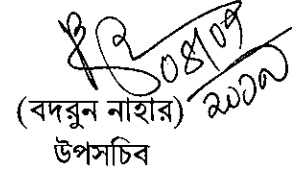 ০৪/০৭
২০১৯
(বদরুন নাহার)
উপসচিব